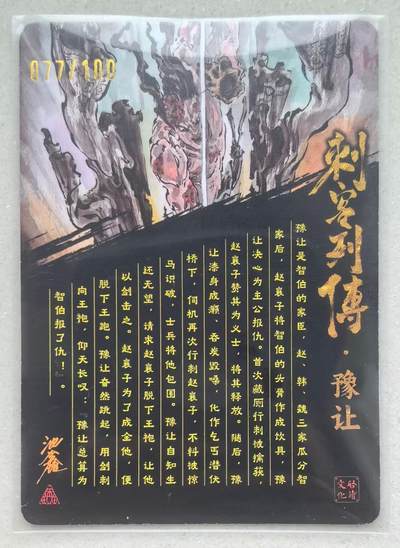 077/100
刺客列傳·豫让
豫让是智伯的家臣,赵、韩、魏三家瓜分智
家后,赵襄子将智伯的头骨作成饮具,豫
让决心为主公报仇。首次藏厕行刺被擒获,
赵襄子赞其为义士,将其释放。随后,豫
让漆身成癞、吞炭毁嗓,化作乞丐潜伏
桥下,伺机再次行刺赵襄子,不料被惊
马识破,士兵将他包围。豫让自知生
还无望,请求赵襄子脱下王袍,让他
以剑击之。赵襄子为了成全他,便
脱下王袍。豫让奋然跳起,用剑刺
向王袍,仰天长叹:『豫让总算为
智伯报了仇!』。
池鑫